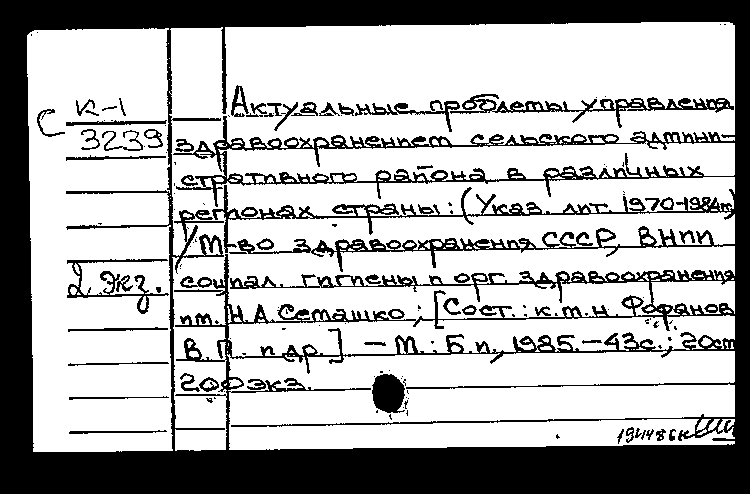 С К-1
3239
Актуальные проблемы управления
здравоохранением сельского админи-
стративного района в различных
регионах страны: (Указ. лит. 1970-1984гг)
/ М-во здравоохранения СССР, ВНИИ
2 экз.
социал. гигиены и орг. здравоохранения
им. Н.А. Семашко; [Сост.: к.м.н. Фофанов
В.П. и др.] - М.: Б.и., 1985. - 43с.; 20см
200экз.